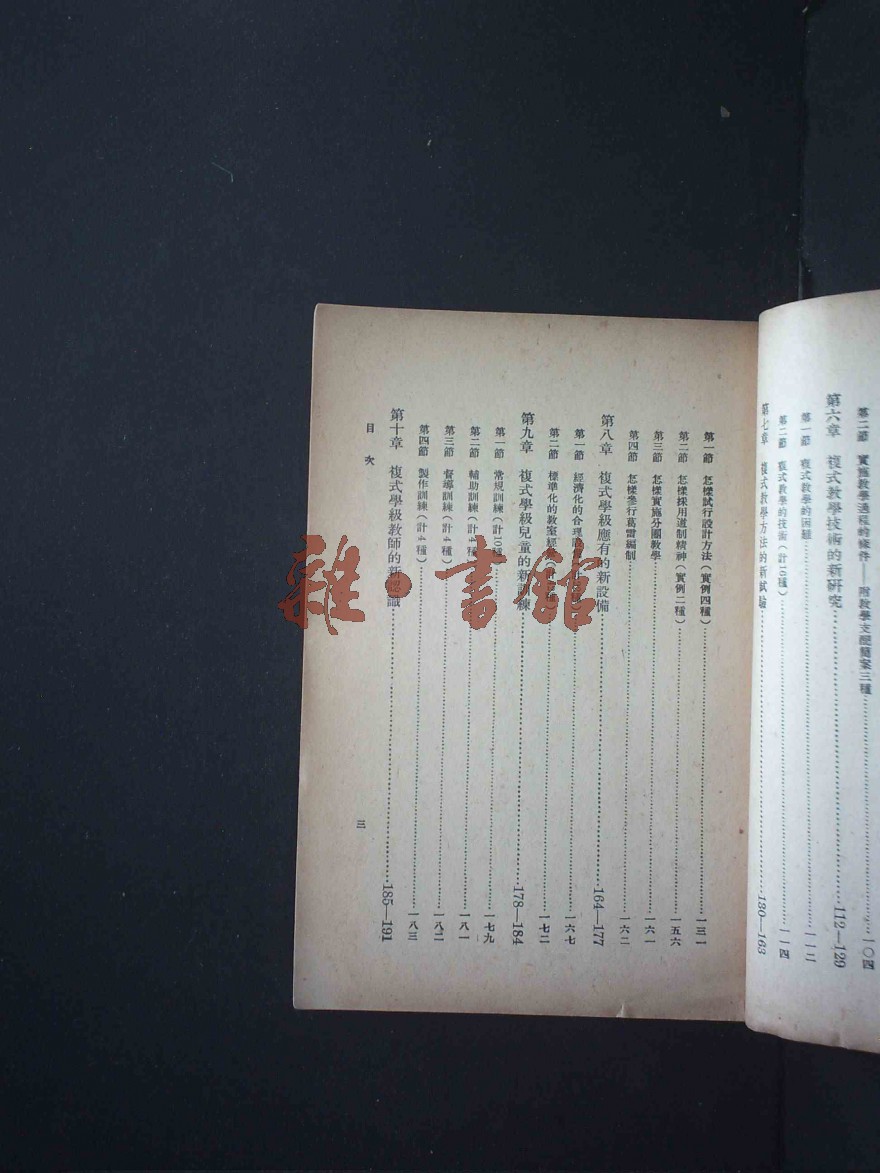 第二節 實施教學過程的條件——附教學支配簡案三種……一〇四
第六章 複式教學技術的新研究……112—129
第一節 複式教學的困難……一一二
第二節 複式教學的技術(計10種)……一一四
第七章 複式教學方法的新試驗……130—163
第一節 怎樣試行設計方法(實例四種)……一三一
第二節 怎樣採用道制精神(實例二種)……一五六
第三節 怎樣實施分團教學……一六一
第四節 怎樣參行葛雷編制……一六二
第八章 複式學級應有的新設備……164—177
第一節 經濟化的合理……一六七
第二節 標準化的教室經……一七二
第九章 複式學級兒童的新訓練……178—184
第一節 常規訓練(計10種)……一七九
第二節 輔助訓練(計4種)……一八一
第三節 督導訓練(計4種)……一八二
第四節 製作訓練(計4種)……一八三
第十章 複式學級教師的新認識……185—191
目次
三
雜·書館